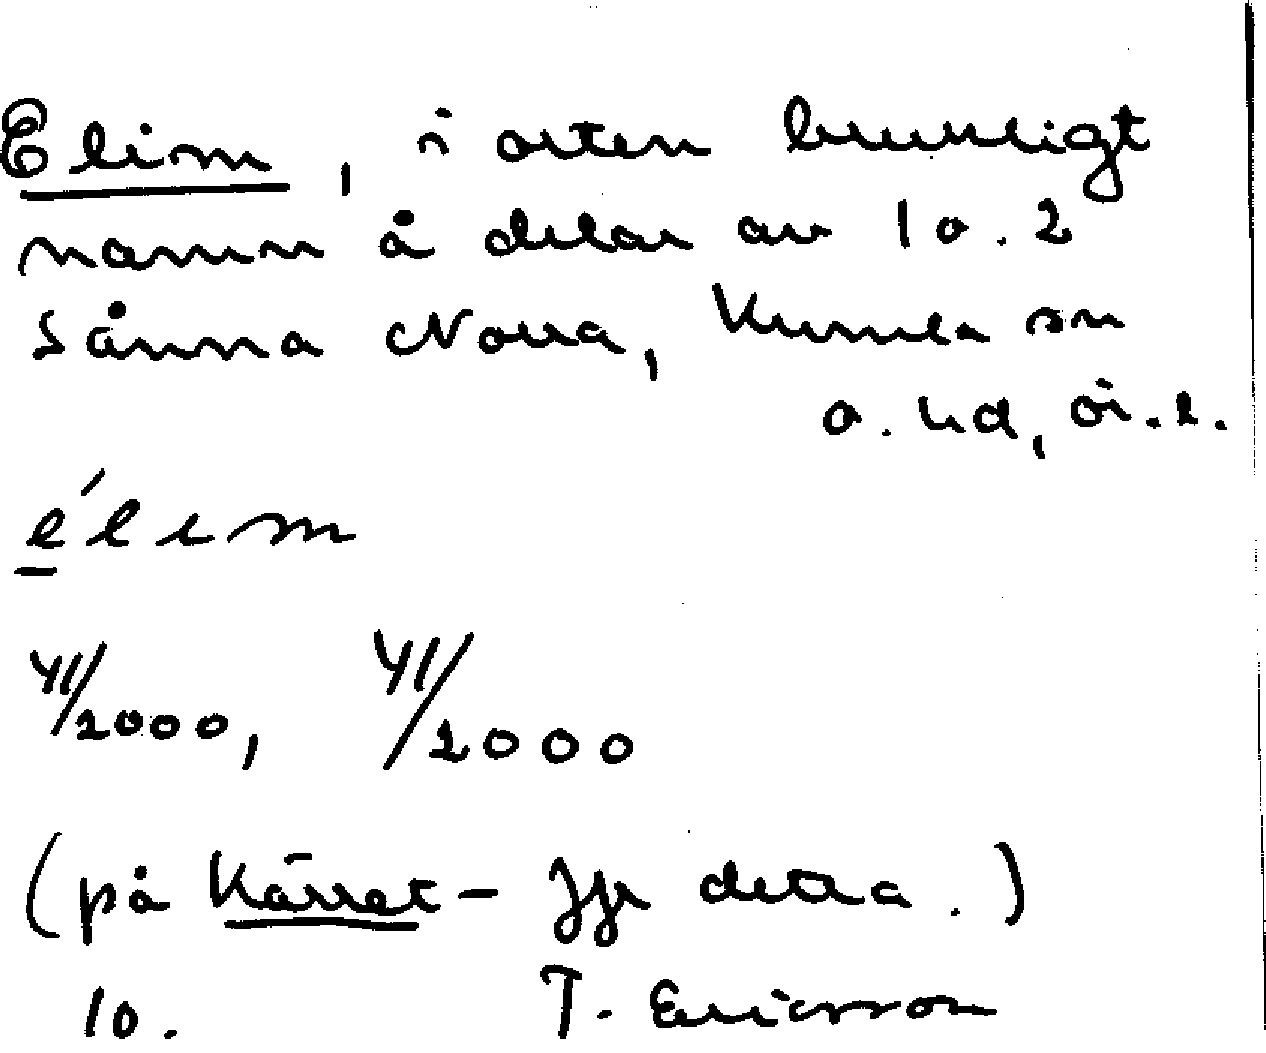 Elim, i orten brukligt
namn å delar av 10.2
Sånna Norra, Kumla sn
o. hd, ör. l.
élim
41/2000, 41/2000
(på Kärret - Jfr detta.)
10. T. Ericsson